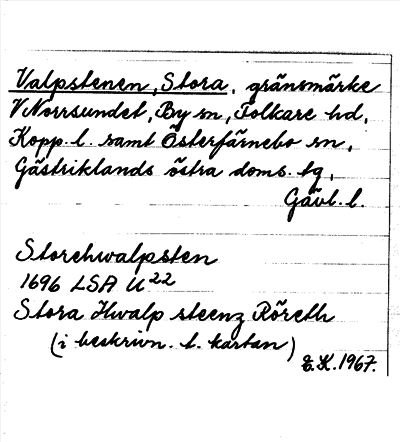 Valpstenen, Stora, gränsmärke
V Norrsundet, By sn, Folkare hd,
Kopp. l. samt Österfärnebo sn,
Gästriklands östra doms. tg,
Gävl. l.
Storehwalpsten
1696 LSA U 22
Stora Hwalp steenz Röreth
(i beskrivn. t. kartan)
E.K. 1967.